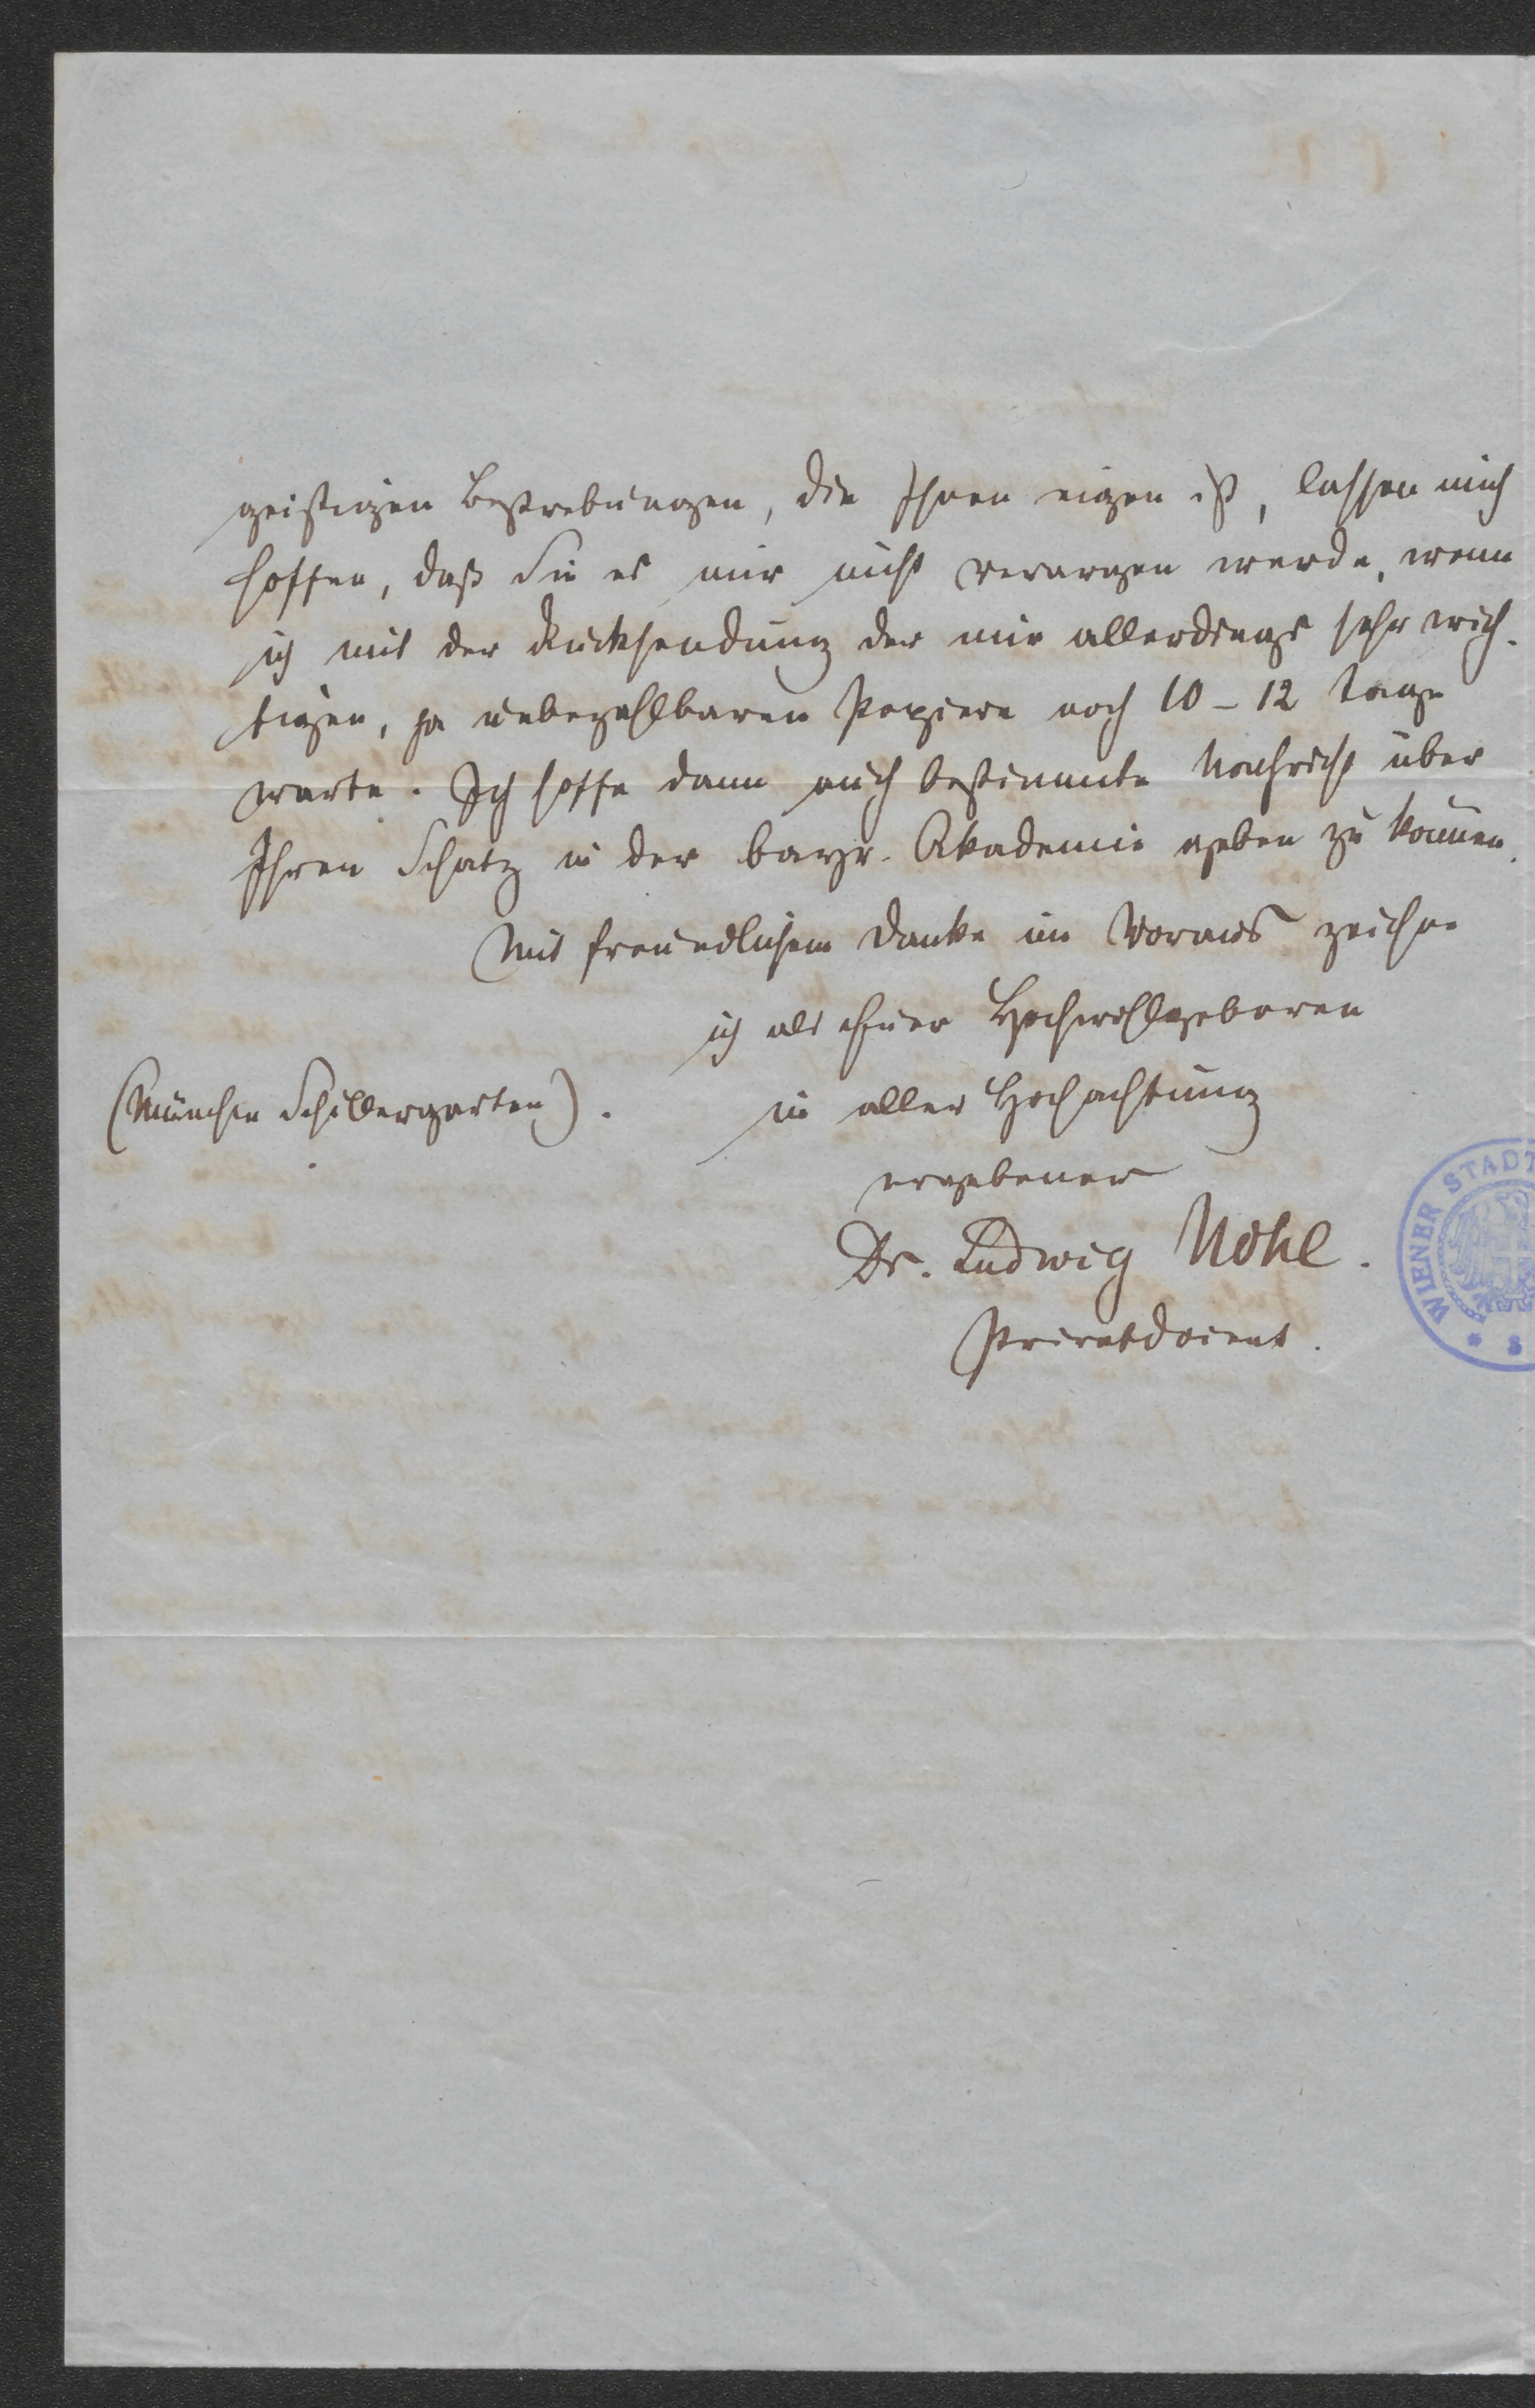 geistigen Bestrebungen, die Ihnen eigen ist, lassen mich
hoffen, daß Sie es mir nicht verargen werde, wenn
ich mit der Rücksendung der mir allerdings sehr wich-
tigen, ja unbezahlbaren Papiere noch 10-12 Tage
warte. Ich hoffe dann auch bestimmte Nachricht über
Ihren Schatz in der bayr. Akademie geben zu können.
Mit freundlichem Danke im Voraus zeichne
ich als Euer Hochwohlgeboren
(München Schillergarten).
in aller Hochachtung
ergebener
Dr. Ludwig Nohl.
Privatdocent.
WIENER STADT